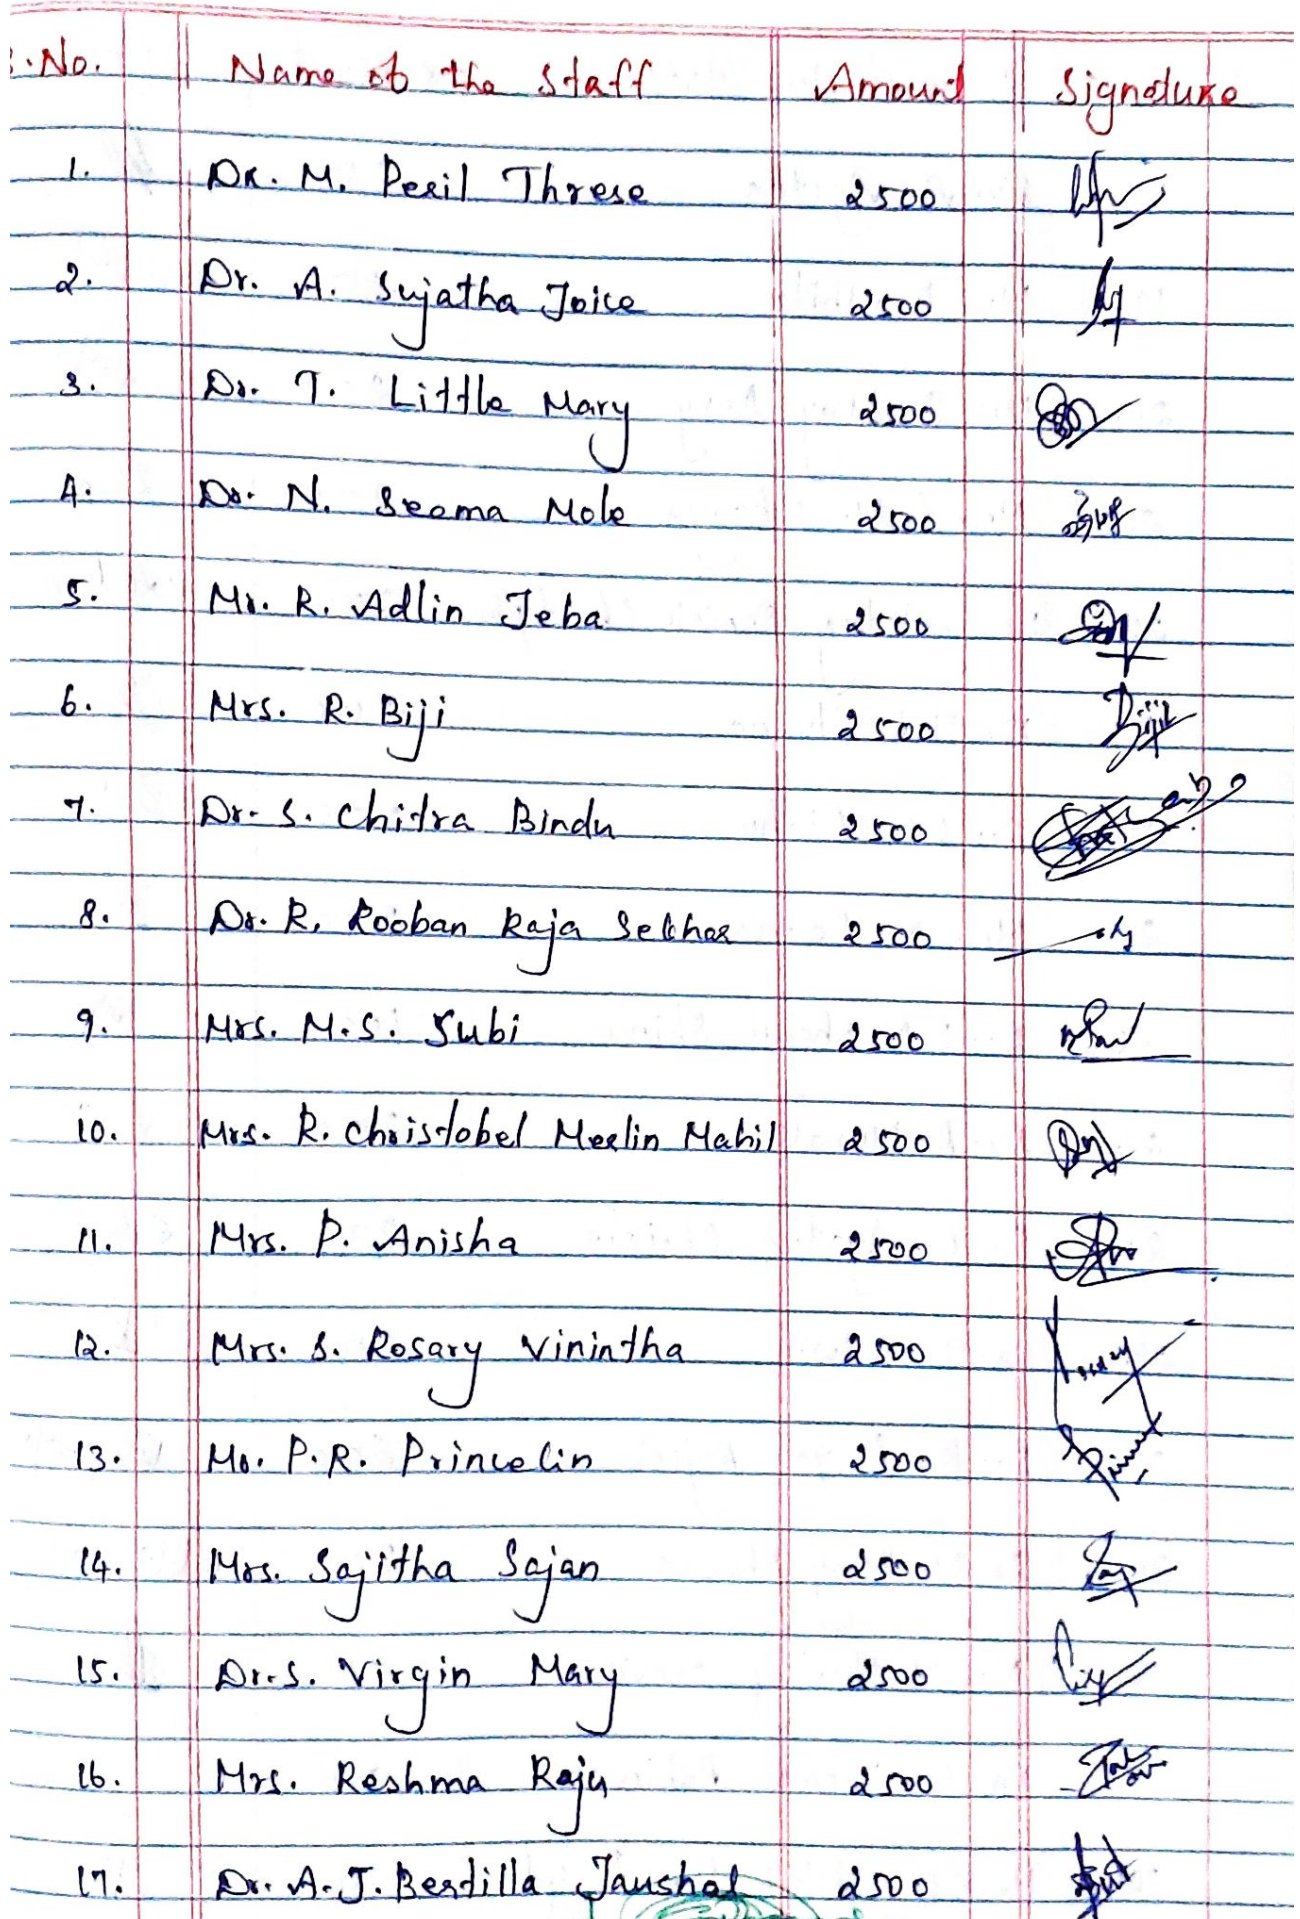 S.No. Name of the Staff Amount Signature
1. Dr. M. Peril Threse 2500
2. Dr. A. Sujatha Joice 2500
3. Dr. T. Little Mary 2500
4. Dr. N. Seema Mole 2500
5. Mr. R. Adlin Jeba 2500
6. Mrs. R. Biji 2500 Biji
7. Dr. S. Chitra Bindu 2500
8. Dr. R. Rooban Raja Sekhar 2500
9. Mrs. M.S. Subi 2500
10. Mrs. R. Christobel Merlin Mahil 2500
11. Mrs. P. Anisha 2500
12. Mrs. S. Rosary Vinintha 2500
13. Mr. P.R. Princelin 2500
14. Mrs. Sajitha Sajan 2500
15. Dr. S. Virgin Mary 2500
16. Mrs. Reshma Raju 2500
17. Dr. A.J. Bertilla Jaushal 2500